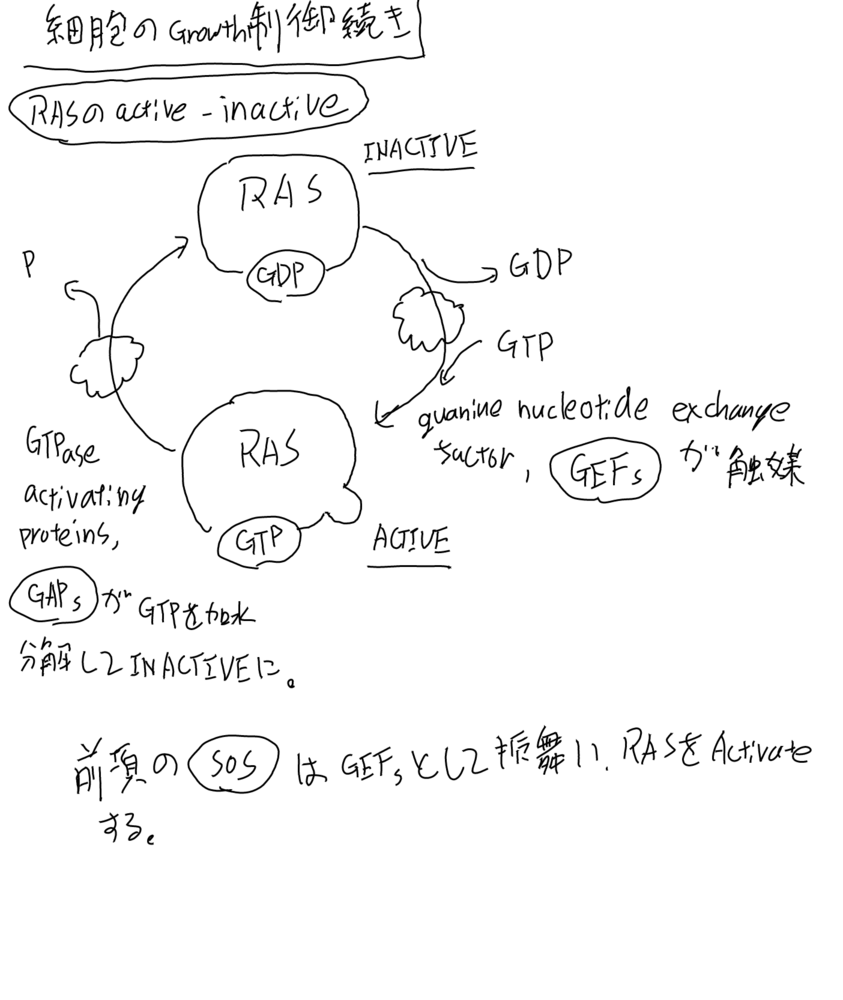 細胞のGrowth制御続き
RASのactive-inactive
INACTIVE
RAS
GDP
P
GDP
GTP
guanine nucleotide exchange
factor, GEFsが触媒
GTPase
activating
proteins,
GAPsがGTPを加水
分解してINACTIVEに。
RAS
GTP
ACTIVE
前項のSOSはGEFsとして振舞い、RASをActivate
する。